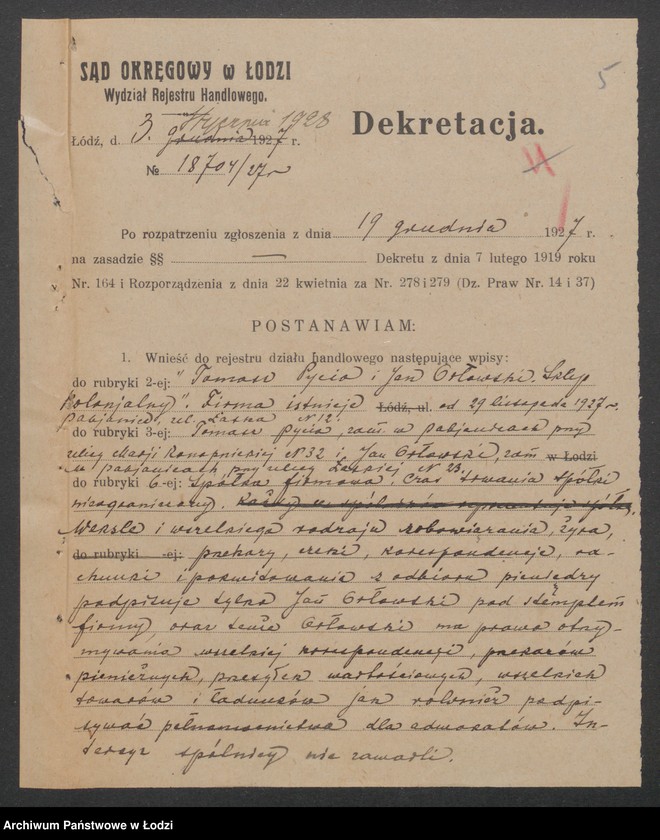 5
SĄD OKRĘGOWY w ŁODZI
Wydział Rejestru Handlowego.
Dekretacja.
stycznia 1928
Łódź, d. 3. grudnia 1927 r.
№ 18704/27 r
Po rozpatrzeniu zgłoszenia z dnia 19 grudnia 1927 r.
na zasadzie §§ — Dekretu z dnia 7 lutego 1919 roku
Nr. 164 i Rozporządzenia z dnia 22 kwietnia za Nr. 278 i 279 (Dz. Praw Nr. 14 i 37)
POSTANAWIAM:
1. Wnieść do rejestru działu handlowego następujące wpisy:
do rubryki 2-ej: "Tomasz Pycio i Jan Orłowski. Sklep
Kolonjalny". Firma istnieje Łódź, ul. od 29 listopada 1927 r.
Pabjanice, ul. Łaska N 12.
do rubryki 3-ej: Tomasz Pycio, zam. w Pabjanicach przy
ulicy Marji Konopnickiej N 32 i Jan Orłowski, zam w Łodzi
w Pabjanicach, przy ulicy Łaskiej N 23.
do rubryki 6-ej: Spółka firmowa. Czas trwania spółki
nieograniczony. Każdy ze spólników reprezentuje spółkę.
Weksle i wszelkiego rodzaju zobowiązania, żyra,
do rubryki -ej: przekazy, czeki, korespondencję, ra-
chunki i pokwitowania z odbioru pieniędzy
podpisuje tylko Jan Orłowski pod stemplem
firmy, oraz tenże Orłowski ma prawo otrzy-
mywania wszelkiej korespondencji, przekazów
pieniężnych, przesyłek wartościowych, wszelkich
towarów i ładunków jak również podpi-
sywać pełnomocnictwa dla adwokatów. In-
tercyz spólnicy nie zawarli.
Archiwum Państwowe w Łodzi